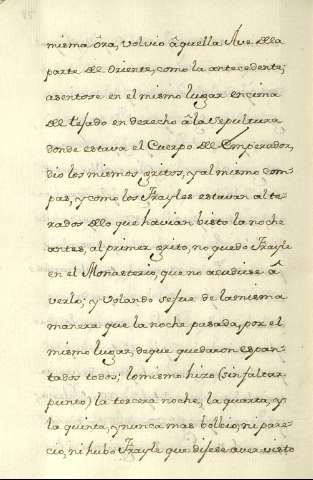 misma óra, volvio âquella Ave dela
parte de Oriente, como la antecedente;
asentose en el mismo lugar encima
del tejado en derecho âla sepultura
donde estava el Cuerpo del Emperador,
dio los mismos gritos, y al mismo com-
pas, y como los Frayles estavan alte-
rados delo que havian bisto la noche
antes, al primer grito, no quedo Frayle
en el Monasterio, que no acudiese â
verlo; y volando se fue de la misma
manera que la noche pasada, por el
mismo lugar, de que quedaron espan-
tados todos; lo mismo hizo (sin faltar
punto) la tercera noche, la quarta, y
la quinta, y nunca mas bolbio, ni pare-
cio, ni hubo Frayle que dijese aver visto